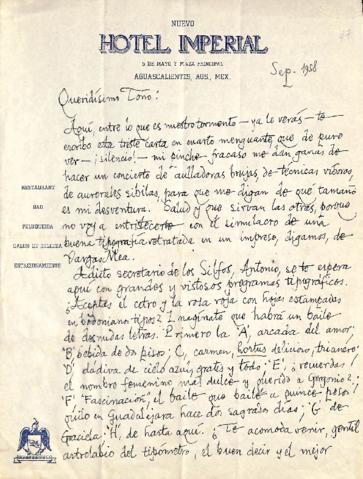 NUEVO
HOTEL IMPERIAL
5 DE MAYO Y PLAZA PRINCIPAL
AGUASCALIENTES, AGS., MEX.
Sep. 1958
Queridísimo Toño:
Aquí, entre lo que es nuestro tormento — ya lo verás — te
escribo esta triste carta en cuarto menguante, que de puro
ver — ¡silencio! — mi pinche fracaso me dan ganas de
hacer un concierto de aulladoras brujas de técnicas
de aurorales sibilas, para que me digan de qué tamaño
es mi desventura. Salud y que sirvan las otras, porque
no voy a entristecerte con el simulacro de una
buena tipografía retratada en un impreso, digamos, de
Vargas Rea.
Adicto secretario de los Silfos, Antonio, se te espera
aquí con grandes y vistosos programas tipográficos.
¿Aceptas el cetro y la rosa roja con hojas estampadas
en bodoniano tipos? Imagínate que habrá un baile
de desnudas letras. Primero la 'A', arcada del amor;
'B', bebida de dos pisos; C, carmen, hortus delicioso, trianero;
'D' dádiva de cielo azul, gratis y todo; 'E', ¡recuerdas!
el nombre femenino mal dulce y querido a Gregorio;
'F' Fascinación, el baile que baile a quince pesos
kilo en Guadalajara hace dos sagrados días; 'G' de
Graciela; 'H', de hasta aquí. ¿Te acomoda venir, gentil
astrolabio del tipómetro, el buen decir y el mejor
RESTAURANT
BAR
PELUQUERIA
SALON DE BELLEZA
ESTACIONAMIENTO